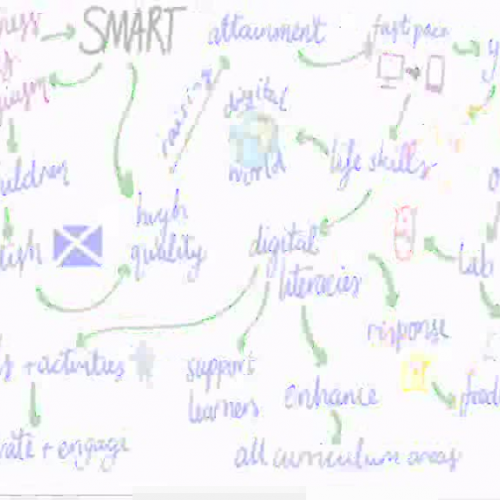 SMART
attainment
fast pace
raising
digital
world
life skills
high
quality
digital
literacies
lab
response
+ activities
support
learners
enhance
+ engage
all curriculum areas